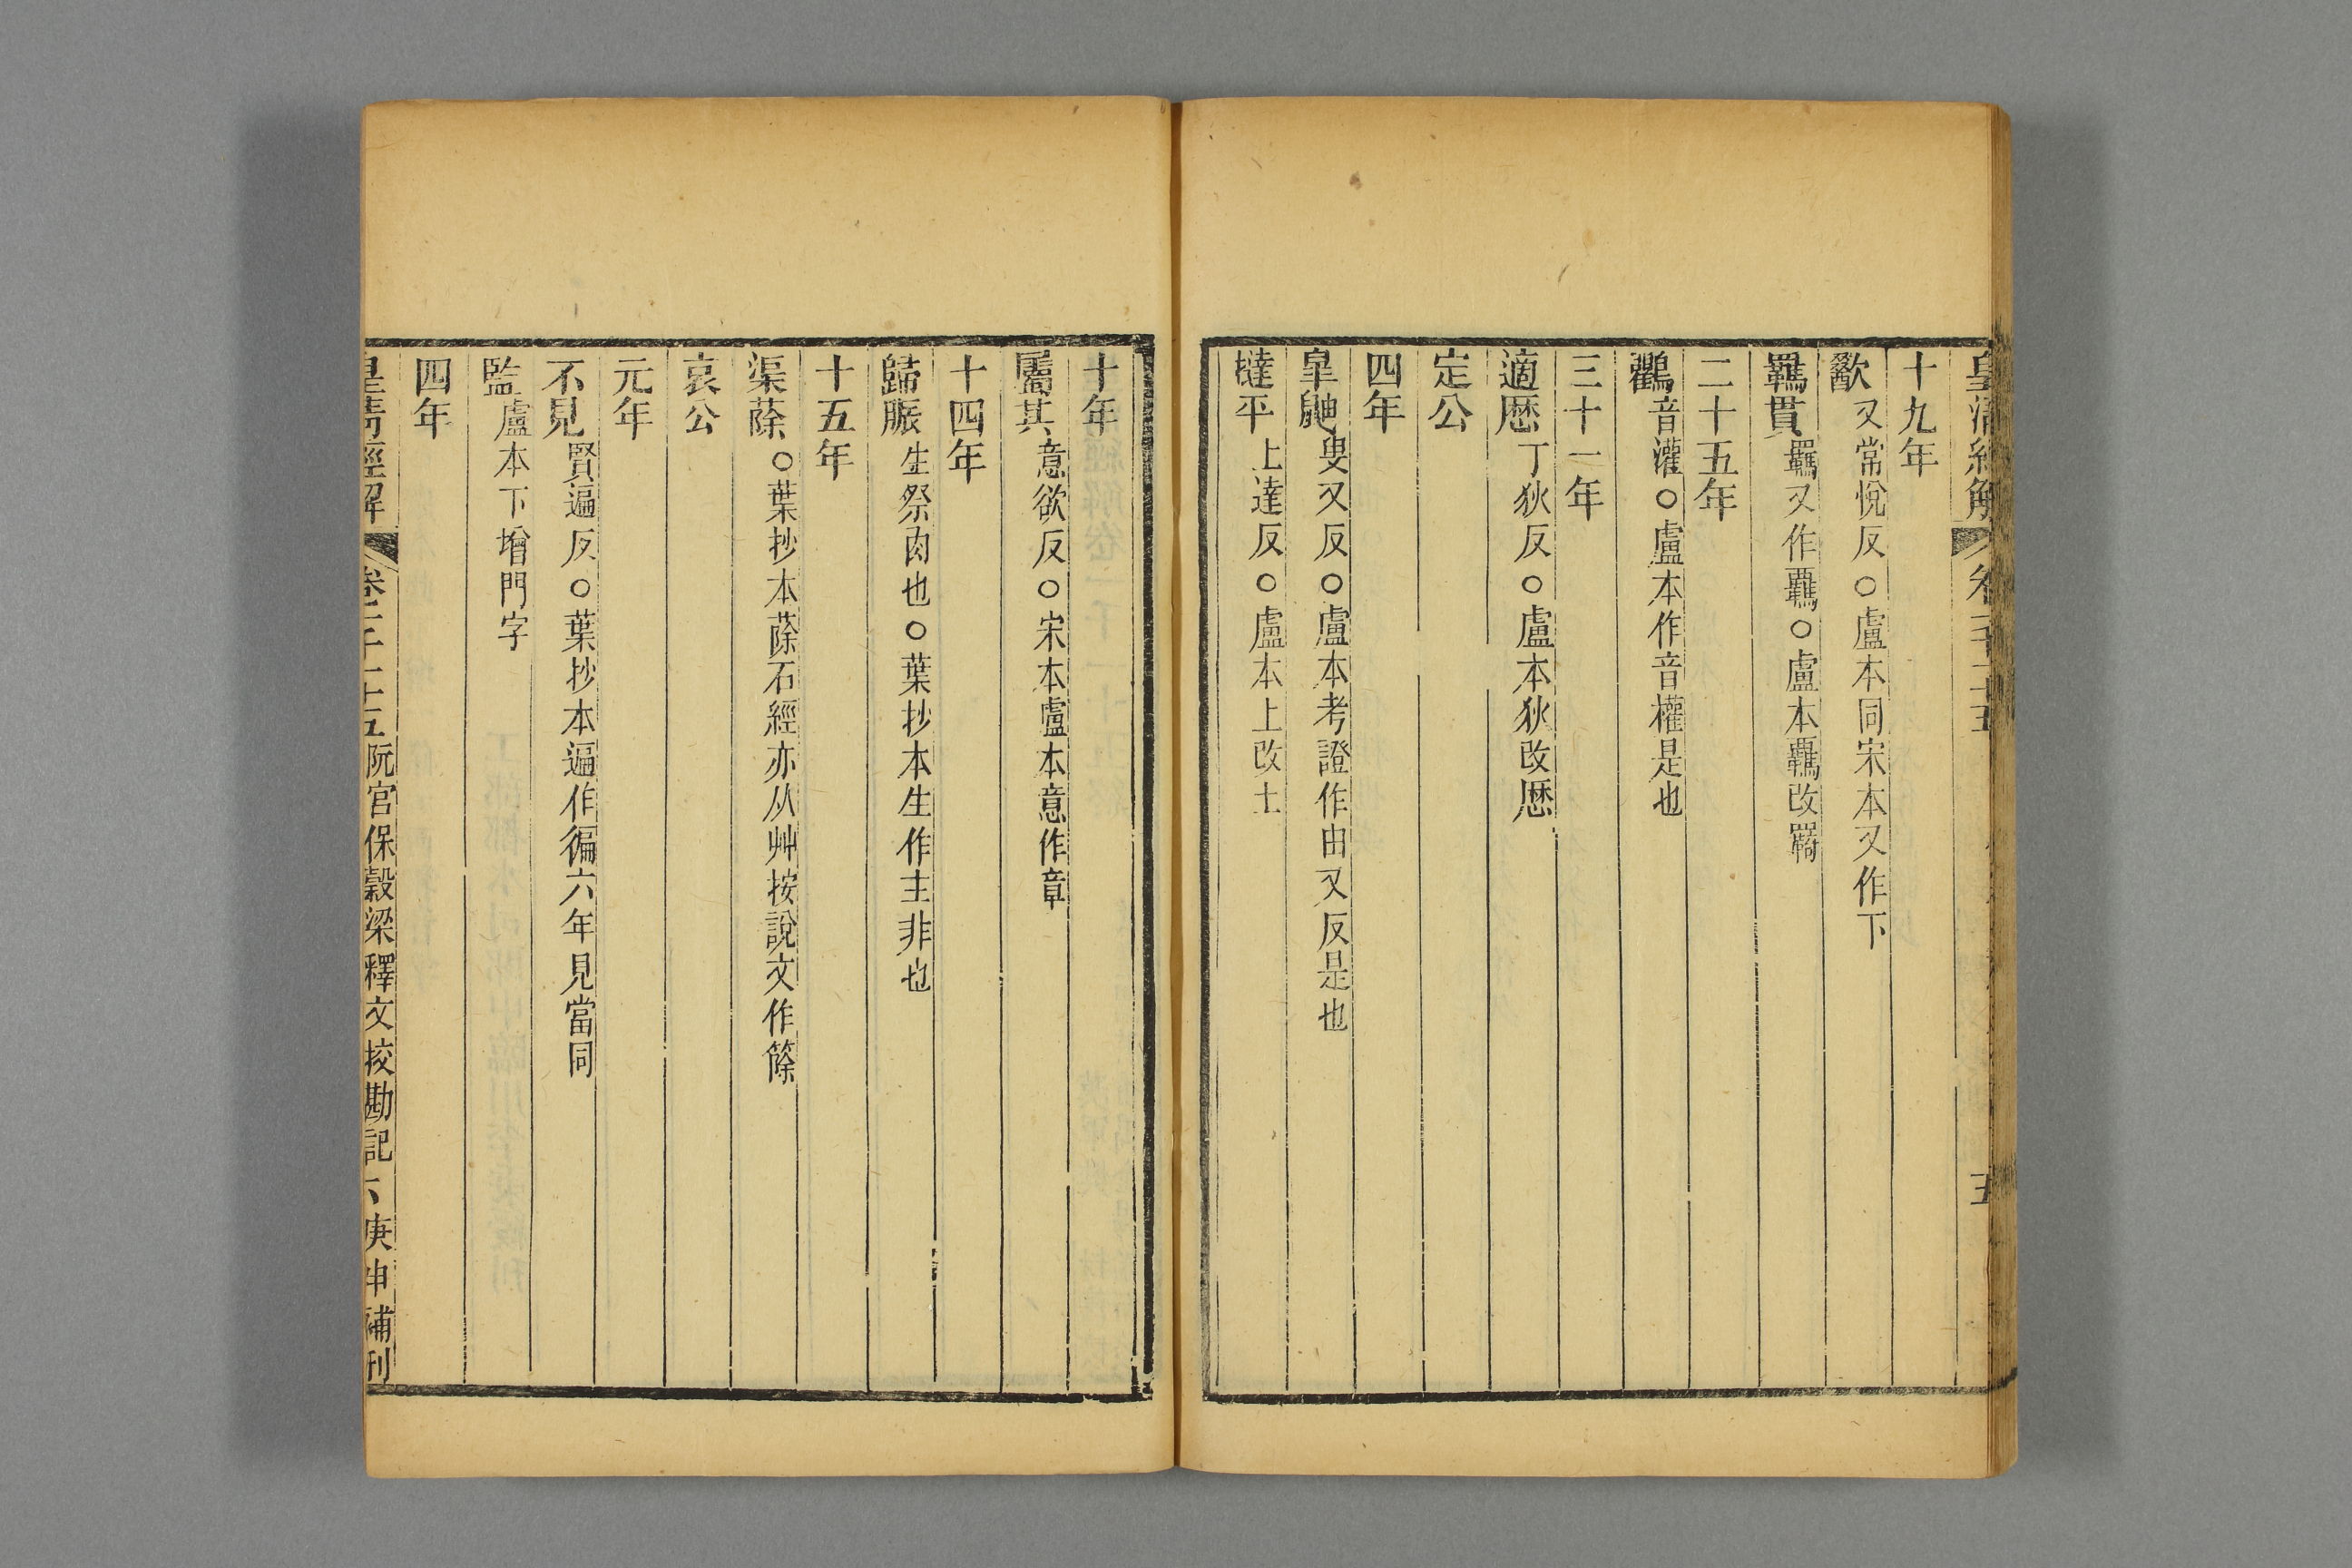 皇清經解 卷一千二十五 五
十九年
歠又常悅反○盧本同宋本又作下
羈貫羈又作覊○盧本覊改羇
二十五年
鸜音灌○盧本作音權是也
三十一年
適歴丁狄反○盧本狄改歴
定公
四年
皐鼬叟又反○盧本考證作由又反是也
撻平上達反○盧本上改土
十年
屬其意欲反○宋本盧本意作章
十四年
歸脤生祭肉也○葉抄本生作主非也
十五年
渠蒢○葉抄本蒢石經亦从艸按說文作篨
哀公
元年
不見賢遍反○葉抄本遍作徧六年見當同
監盧本下增門字
四年
皇清經解 卷一千二十五 阮宮保穀梁釋文挍勘記 六 庚申補刊